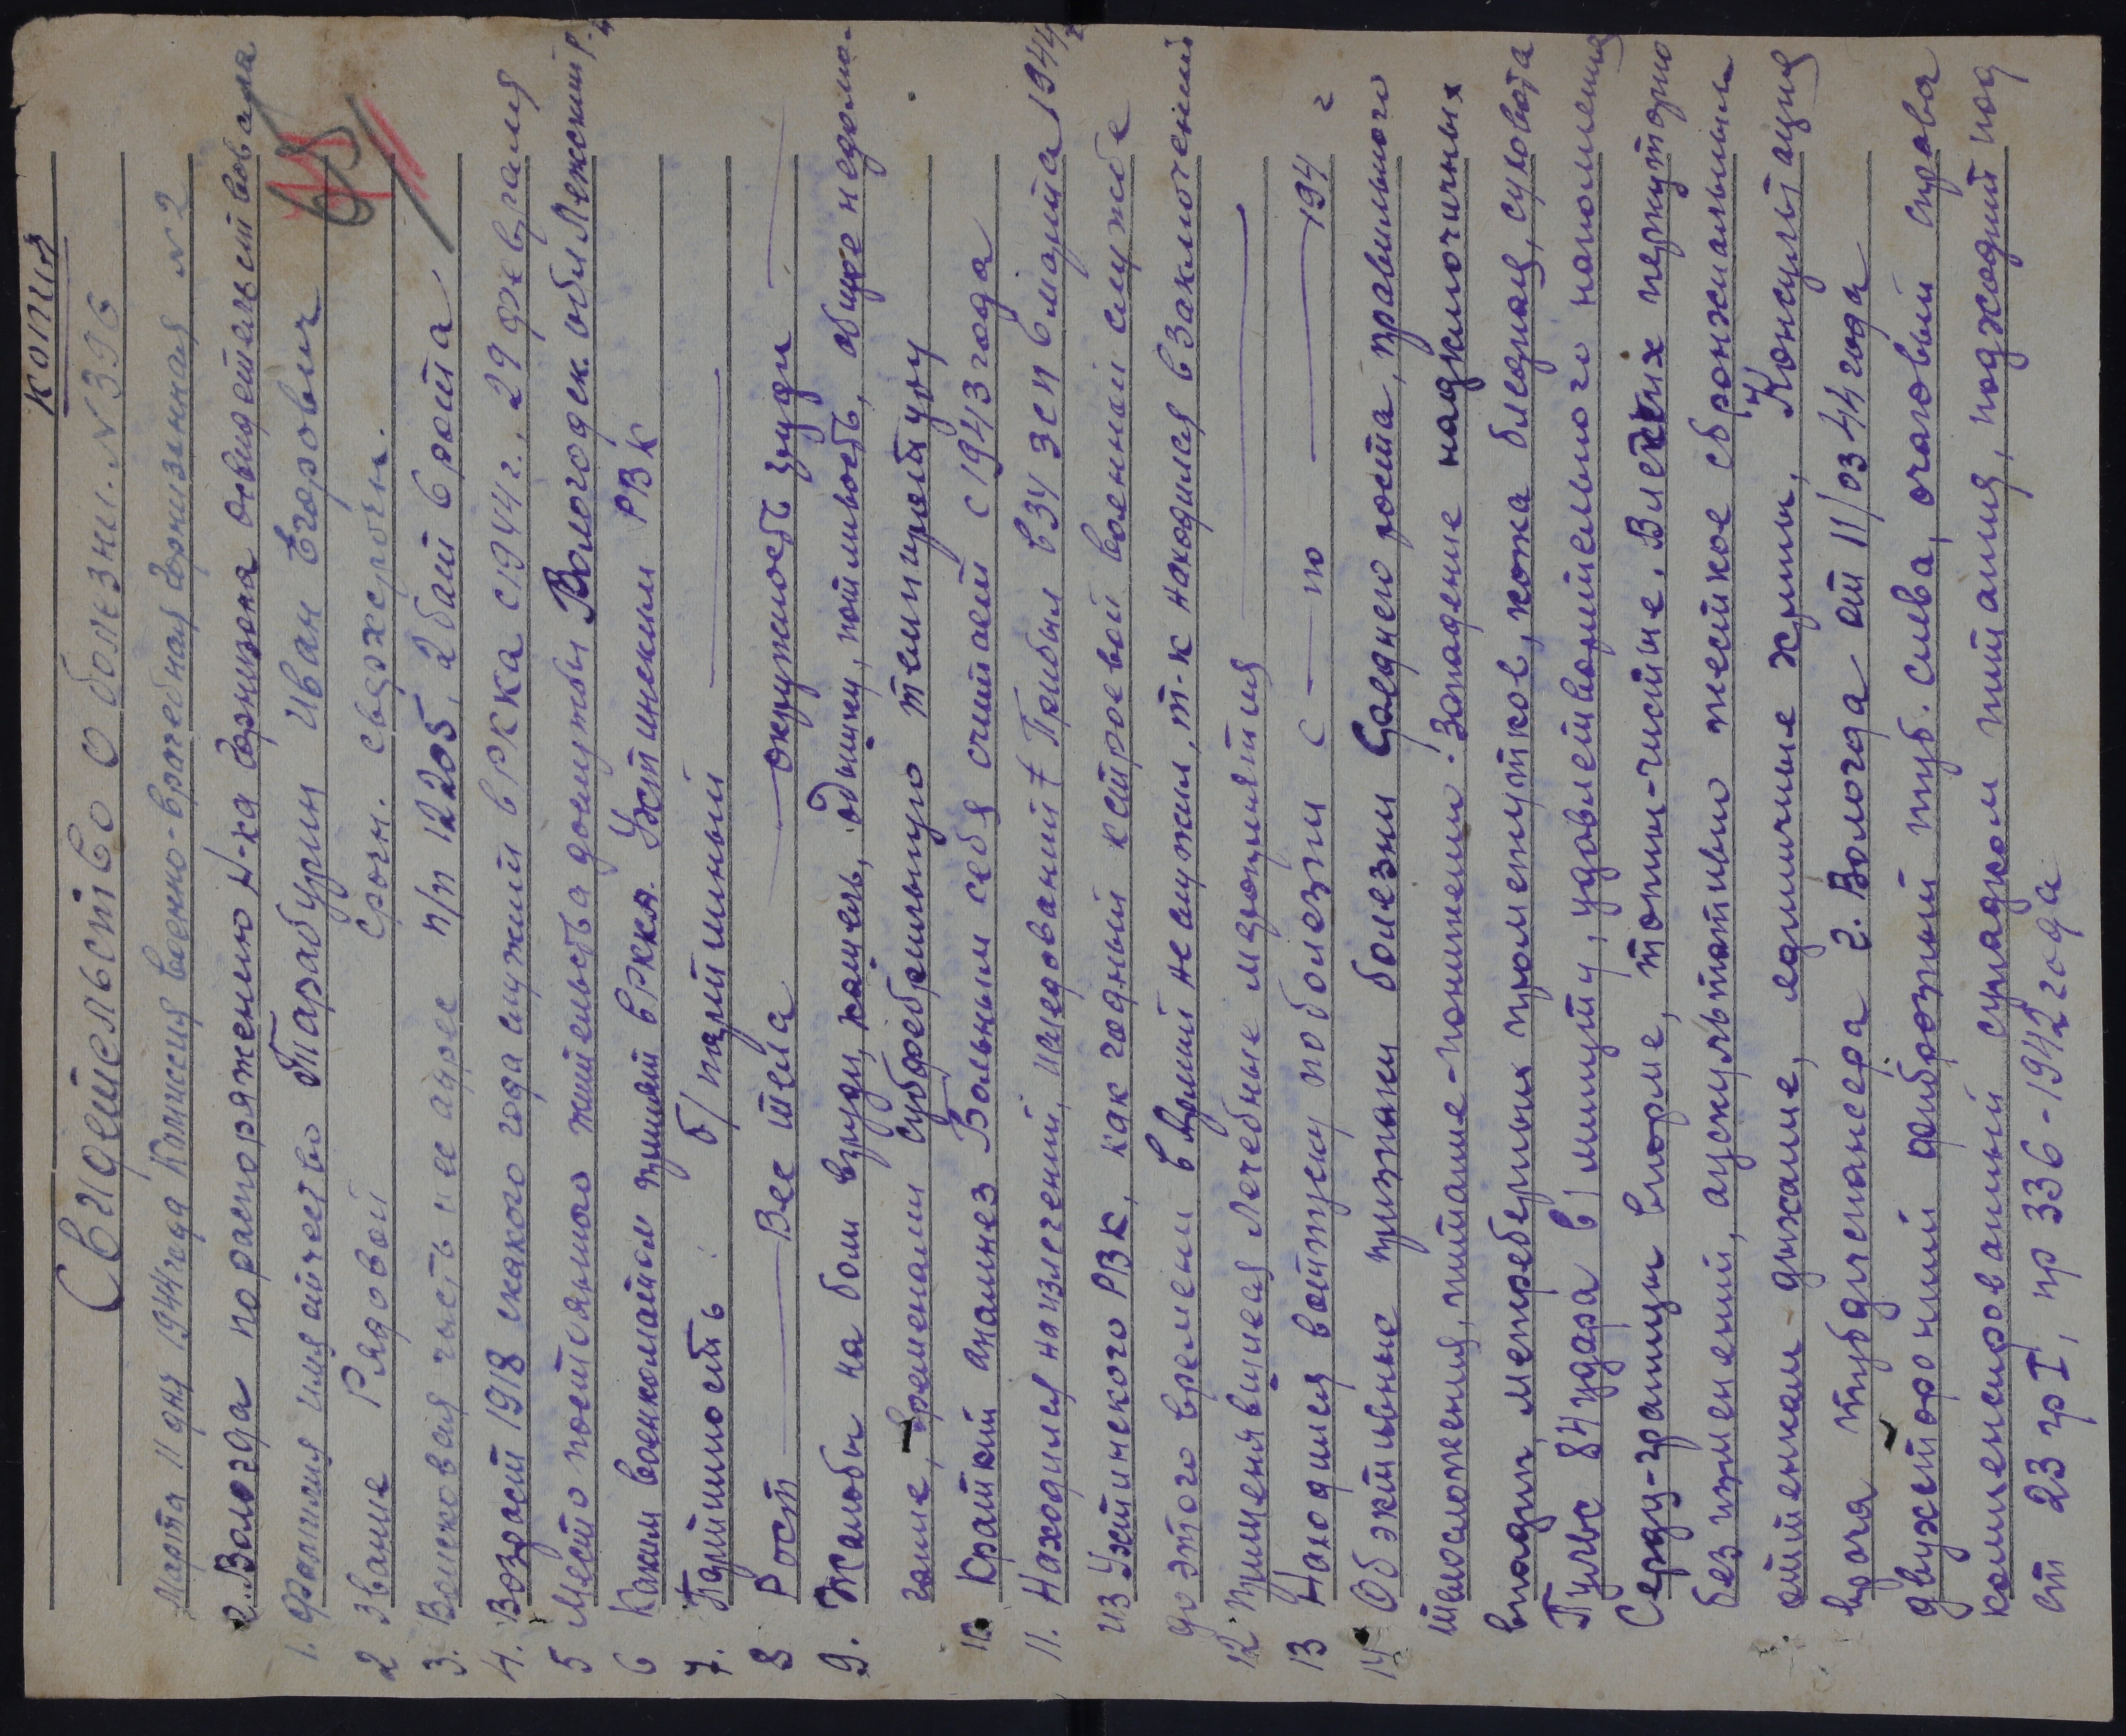 копия
Свидетельство о болезни. №396
Марта 11 дня 1944 года Комиссия военно-врачебная гарнизонная №2
г. Вологда по распоряжению Н-ка Гарнизона освидетельствовала
1. Фамилия имя отчество Тарабурин Иван Егорович
65
2 Звание Рядовой срочн. сверхсрочн.
3. Воинская часть и ее адрес п/п 12205, 2 бат 6 рота
4. Возраст 1918 с какого года служит в РККА с 1944 г. 29 февраля
5 Место постоянного жительства до службы Вологодск. обл Лежский р.
6 Каким военкоматом принят в РККА. Устинским РВК
7. Партийность б/партийный
8 Рост Вес тела окружность груди
9. Жалобы на боли в груди, кашель, одышку, потливость, общее недомо-
гание, временами субфебрильную температуру
10. Краткий анамнез Больным себя считает с 1943 года
11. Находился на излечении, исследовании Прибыл в 34 зсп 6 марта 1944 г
из Устинского РВК, как годный к строевой военной службе
до этого времени в Армии не служил, т-к находился в заключении
12. Применявшиеся лечебные мероприятия
13 Находился в отпуску по болезни с по 194 г
14. Обэктивные признаки болезни Среднего роста, правильного
телосложения, питание-пониженно. Западение надключичных
впадин, межреберных промежутков, кожа бледная, суховата
Пульс 84 удара в 1 минуту, удовлетворительного наполнения
Сердце-границы в норме, тоны-чистые. В легких перкуторно
без изменений, аускультативно жесткое с бронхиальным
оттенком дыхание, единичные хрипы. Консультация
врача тубдиспансера г. Вологда от 11/03 44 года
двухсторонний фиброзный туб. слева, очаговый справа
компенсированный с упадком питания, подходит под
ст 23 гр I, пр 336-1942 года